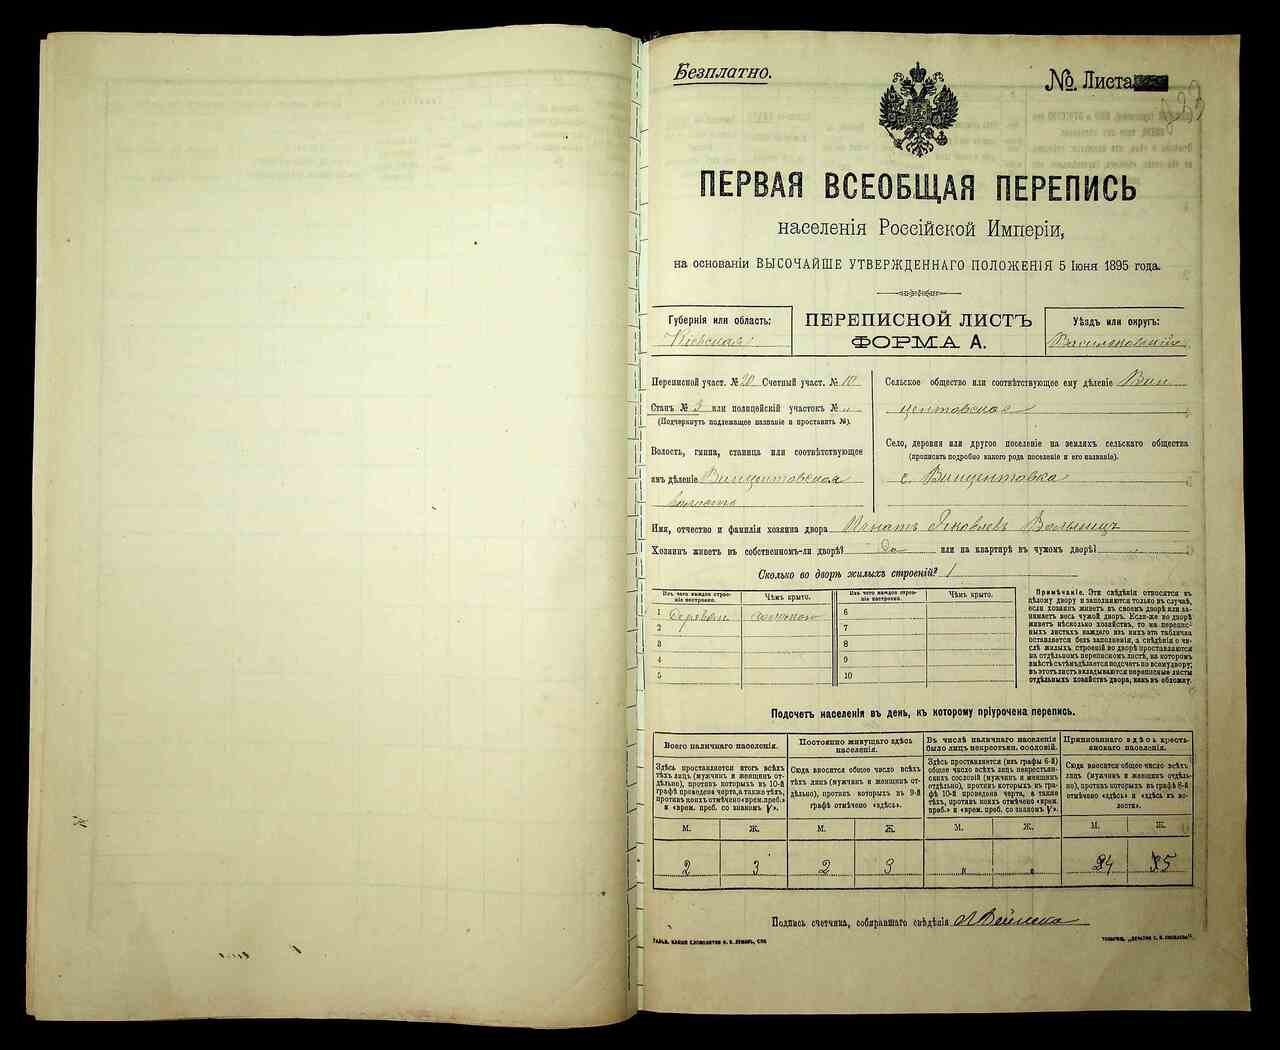 Безплатно.
№. Листа
ПЕРВАЯ ВСЕОБЩАЯ ПЕРЕПИСЬ
населенія Россійской Имперіи,
на основаніи ВЫСОЧАЙШЕ УТВЕРЖДЕННАГО ПОЛОЖЕНІЯ 5 Іюня 1895 года.
Губернія или область:
Кіевская
ПЕРЕПИСНОЙ ЛИСТЪ
ФОРМА А.
Уѣздъ или округъ:
Васильковскій
Переписной участ. № 20 Счетный участ. № 10
Станъ № 3 или полицейскій участокъ № „
(Подчеркнуть подлежащее названіе и проставить №).
Волость, гмина, станица или соотвѣтствующее
имъ дѣленіе Винцентовская
волость
Сельское общество или соотвѣтствующее ему дѣленіе Вин
центовское
Село, деревня или другое поселеніе на земляхъ сельскаго общества
(прописать подробно какого рода поселеніе и его названіе).
с. Винцентовка
Имя, отчество и фамилія хозяина двора Игнатъ Яковлевъ
Хозяинъ живетъ въ собственномъ-ли дворѣ? Да или на квартирѣ въ чужомъ дворѣ?
Сколько во дворѣ жилыхъ строеній? 1
Изъ чего каждое строе-
ніе построено.
Чѣмъ крыто.
Изъ чего каждое строе-
ніе построено.
Чѣмъ крыто.
1 Деревян. соломой
2
3
4
5
6
7
8
9
10
Примѣчаніе. Эти свѣдѣнія относятся къ
цѣлому двору и заполняются только въ случаѣ,
если хозяинъ живетъ въ своемъ дворѣ или за-
нимаетъ весь чужой дворъ. Если-же во дворѣ
живетъ нѣсколько хозяйствъ, то на перепис-
ныхъ листахъ каждаго изъ нихъ эта табличка
оставляется безъ заполненія, а свѣдѣнія о чи-
слѣ жилыхъ строеній во дворѣ проставляются
на отдѣльномъ переписномъ листѣ, на которомъ
вмѣстѣ съ тѣмъ дѣлается подсчетъ по всему двору;
въ этотъ листъ вкладываются переписные листы
отдѣльныхъ хозяйствъ двора, какъ въ обложку.
Подсчетъ населенія въ день, къ которому пріурочена перепись.
Всего наличнаго населенія.
Здѣсь проставляется итогъ всѣхъ
тѣхъ лицъ (мужчинъ и женщинъ от-
дѣльно), противъ которыхъ въ 10-й
графѣ проведена черта, а также тѣхъ,
противъ коихъ отмѣчено «врем. преб.»
и «врем. преб. со знакомъ V».
Постоянно живущаго здѣсь
населенія.
Сюда вносится общее число всѣхъ
тѣхъ лицъ (мужчинъ и женщинъ от-
дѣльно), противъ которыхъ въ 9-й
графѣ отмѣчено «здѣсь».
Въ числѣ наличнаго населенія
было лицъ некрестьян. сословій.
Здѣсь проставляется (изъ графы 6-й)
общее число всѣхъ лицъ некрестьян-
скихъ сословій (мужчинъ и женщинъ
отдѣльно), противъ которыхъ въ гра-
фѣ 10-й проведена черта, а также
тѣхъ, противъ коихъ отмѣчено «врем.
преб.» и «врем. преб. со знакомъ V».
Приписаннаго здѣсь кресть-
янскаго населенія.
Сюда вносится общее число всѣхъ
лицъ (мужчинъ и женщинъ отдѣль-
но), противъ которыхъ въ графѣ 8-й
отмѣчено «здѣсь» и «здѣсь въ во-
лости».
М. Ж. М. Ж. М. Ж. М. Ж.
2 3 2 3 „ „ 4 5
Подпись счетчика, собиравшаго свѣдѣнія